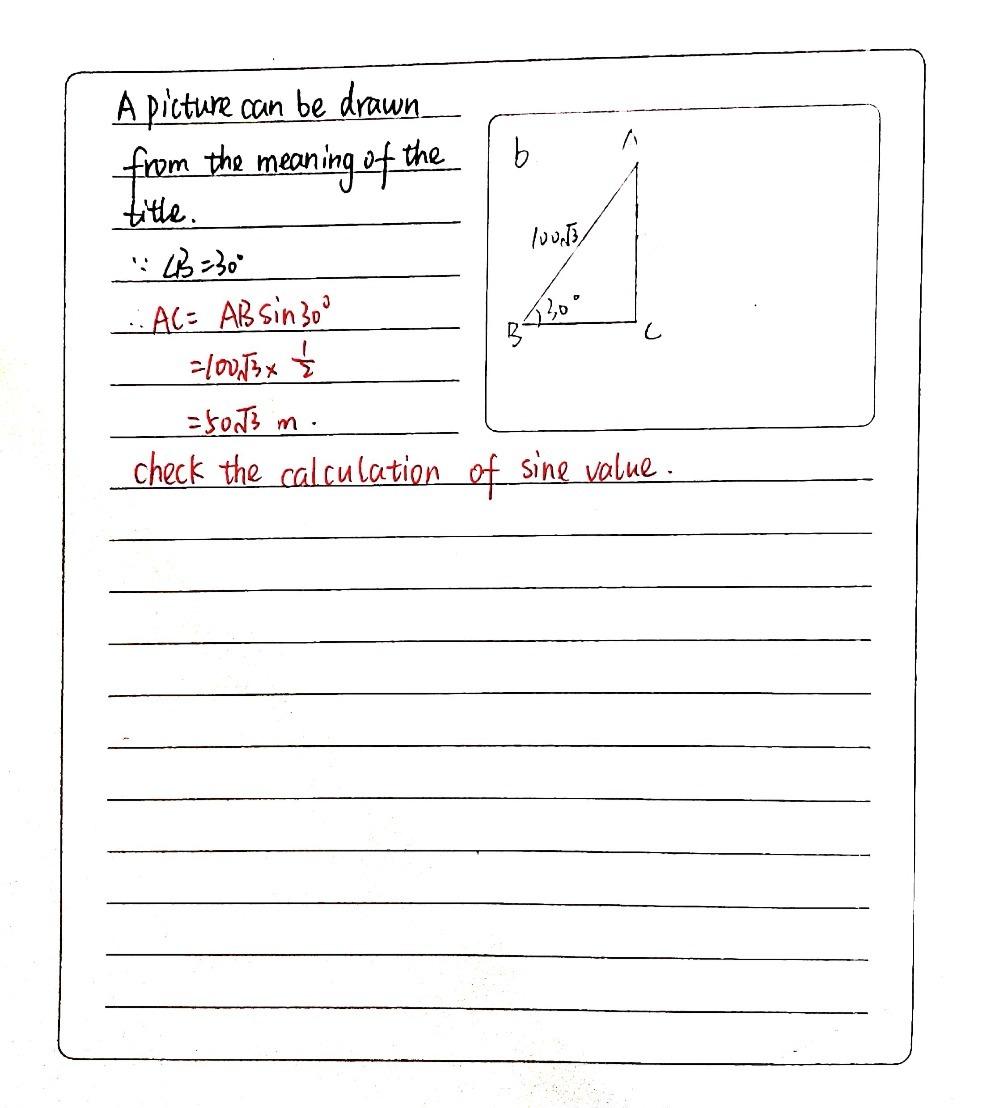 A picture can be drawn
from the meaning of the
title.
∵ ∠B=30°
∴ AC= AB sin30°
=100√3 × 1/2
=50√3 m.
check the calculation of sine value.
b
A
100√3
30°
B
C